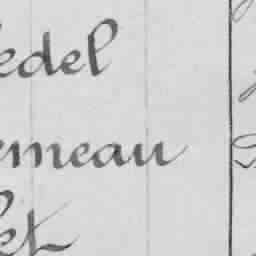 edel
emeau
et